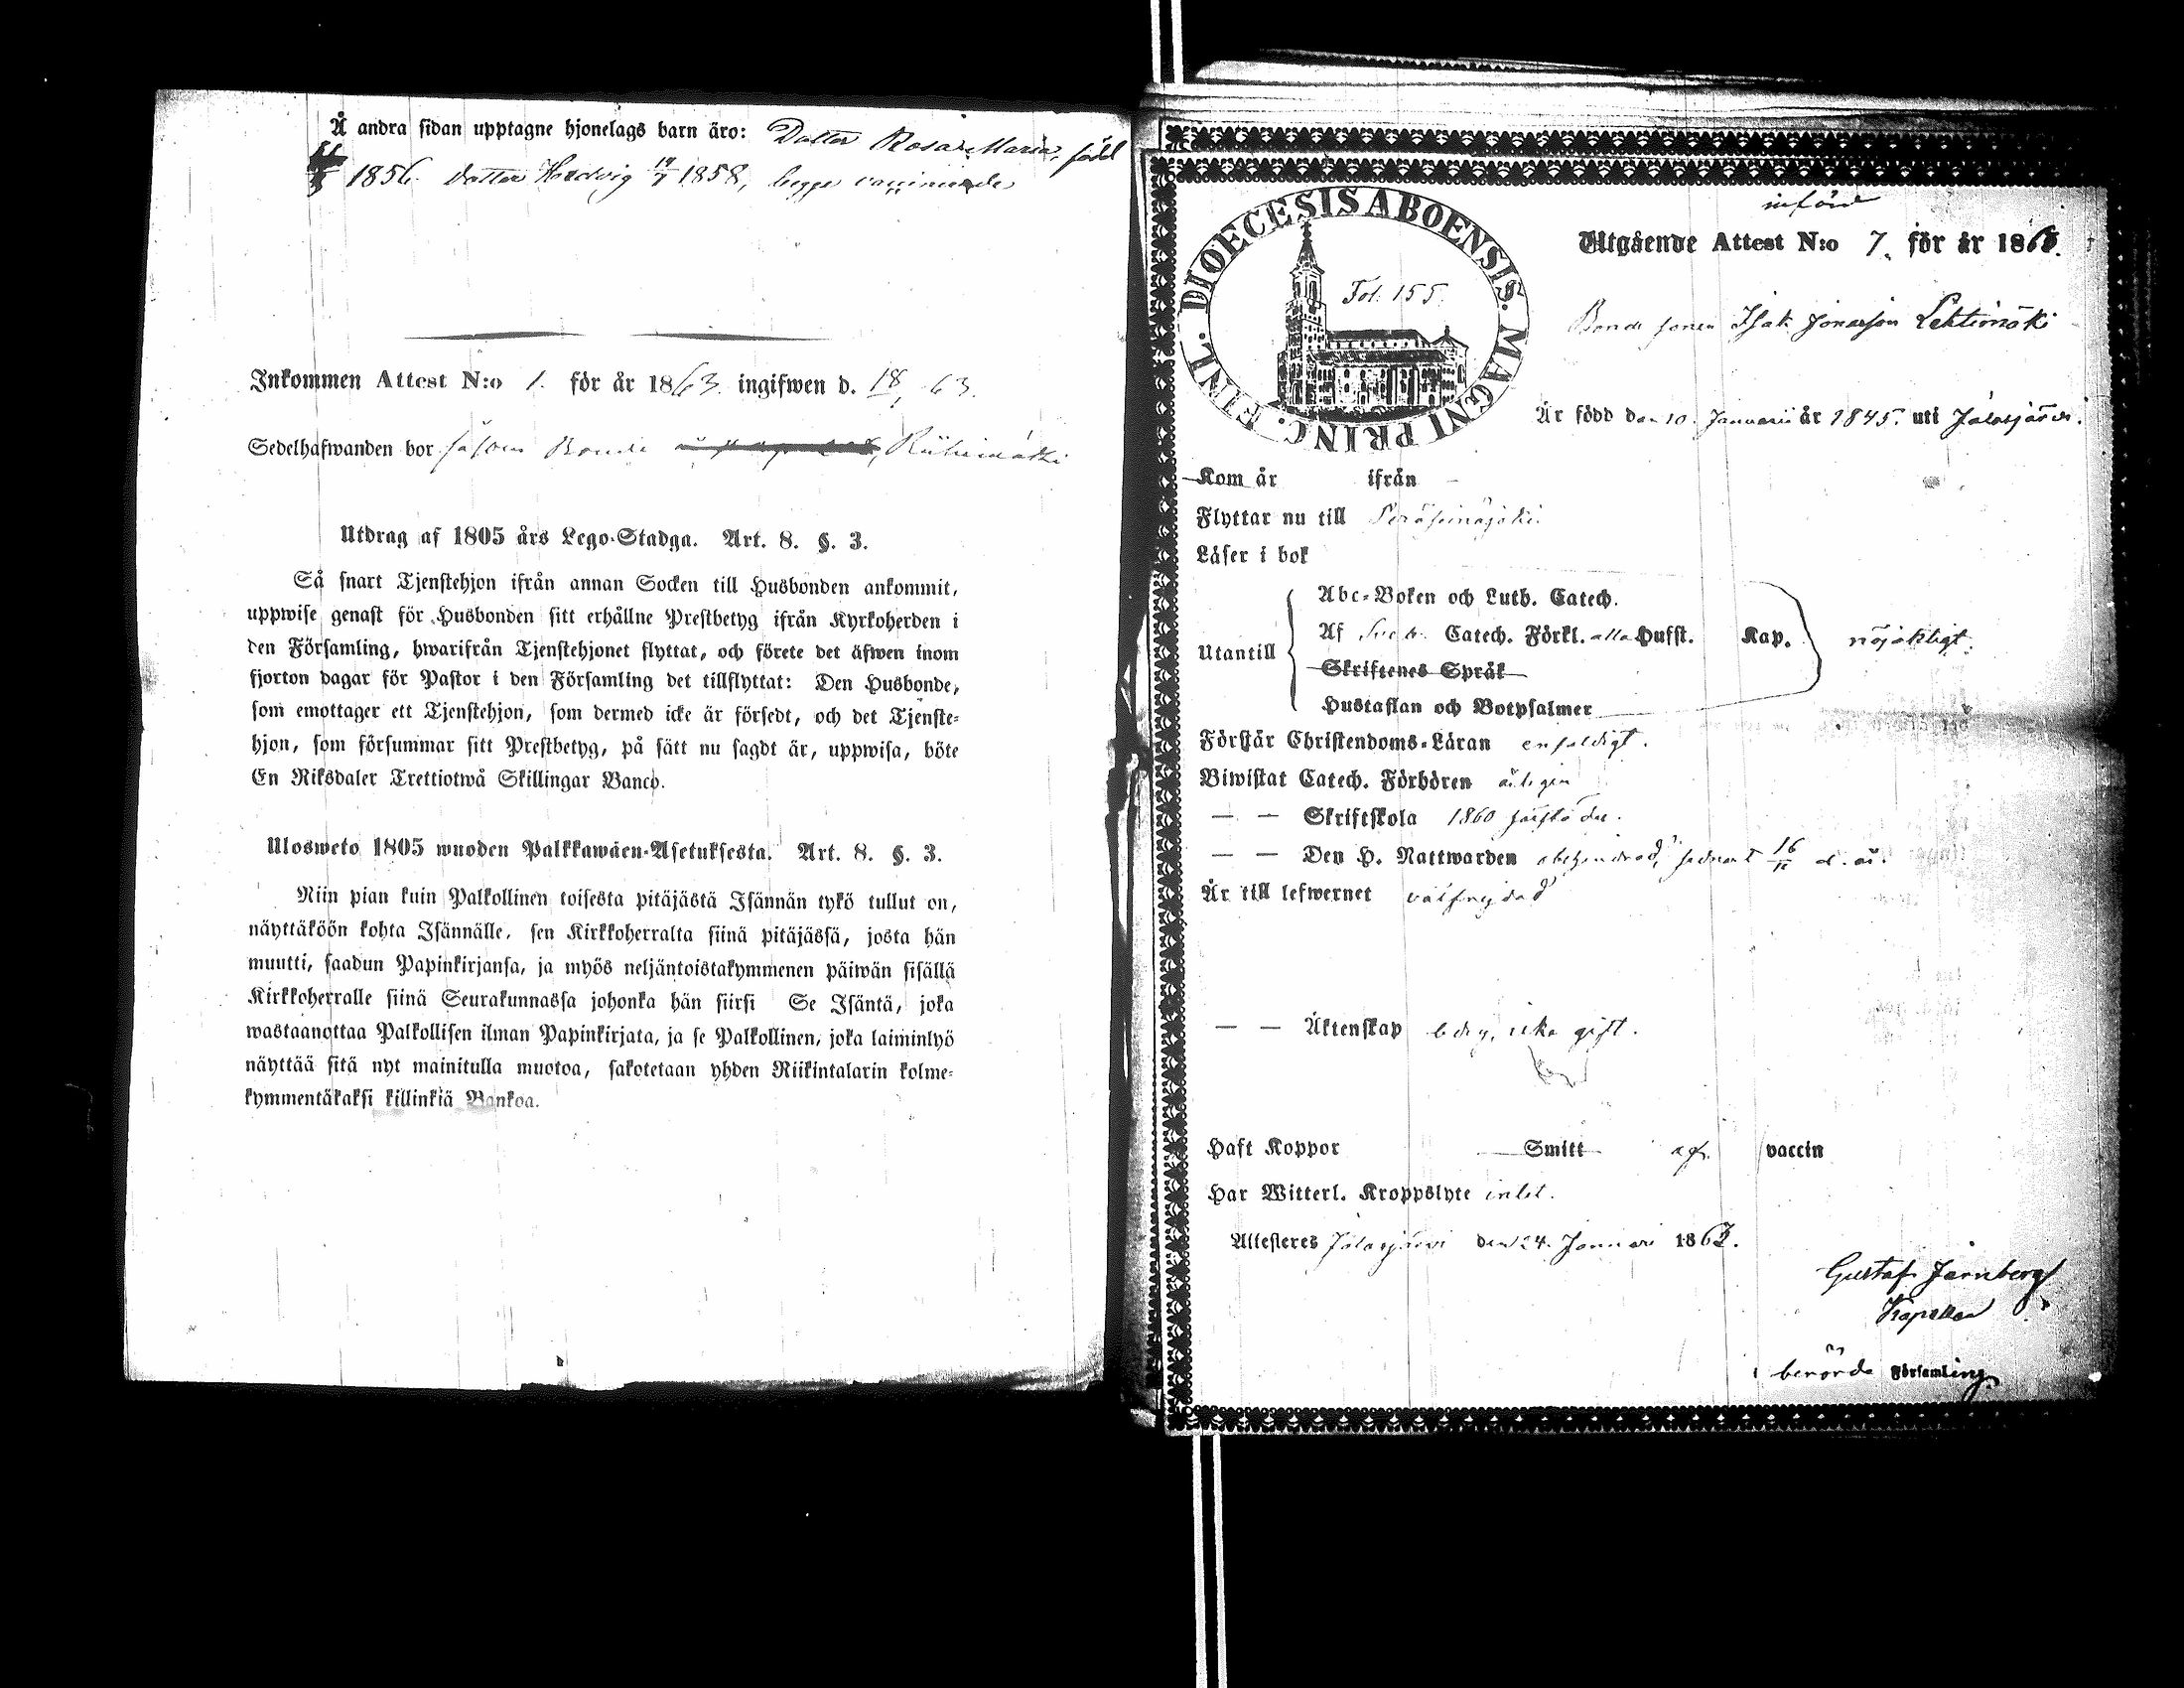 Å andra sidan upptagne hjonelags barn äro: Dotter Rosa Maria, född
1856. Dotter Hedvig 19/7 1858, begge vaccinerade
Inkommen Attest N:o 1. för år 1863. ingifwen d. 18/1 63.
Sedelhafwanden bor såsom Bonde Riihimäki
Utdrag af 1805 års Lego-Stadga. Art. 8. §. 3.
Så snart Tjenstehjon ifrån annan Socken till Husbonden ankommit,
uppwise genast för Husbonden sitt erhållne Prestbetyg ifrån Kyrkoherden i
den Församling, hwarifrån Tjenstehjonet flyttat, och förete det äfwen inom
fjorton dagar för Pastor i den Församling det tillflyttat: Den Husbonde,
som emottager ett Tjenstehjon, som dermed icke är försedt, och det Tjenste-
hjon, som försummar sitt Prestbetyg, på sätt nu sagdt är, uppwisa, böte
En Riksdaler Trettiotwå Skillingar Banco.
Ulosweto 1805 wuoden Palkkawäen-Asetuksesta. Art. 8. §. 3.
Niin pian kuin Palkollinen toisesta pitäjästä Isännän tykö tullut on,
näyttäköön kohta Isännälle, sen Kirkkoherralta siinä pitäjässä, josta hän
muutti, saadun Papinkirjansa, ja myös neljäntoistakymmenen päiwän sisällä
Kirkkoherralle siinä Seurakunnassa johonka hän siirsi Se Isäntä, joka
wastaanottaa Palkollisen ilman Papinkirjata, ja se Palkollinen, joka laiminlyö
näyttää sitä nyt mainitulla muotoa, sakotetaan yhden Riikintalarin kolme-
kymmentäkaksi killinkiä Bankoa.
DIOECESIS ABOENSIS. MAGNI PRINC. FINL.
Fol. 155.
införd
Utgående Attest N:o 7. för år 186
Bonde sonen Isak Jonasson Lehtimäki
Är född den 10. Januarii år 1845. uti Jalasjärvi.
Kom år ifrån
Flyttar nu till Peräseinäjoki.
Läser i bok
Utantill
Abc-Boken och Luth. Catech.
Af Sveb. Catech. Förkl. alla Hufst. Kap. nöjaktigt.
Skriftenes Språk
Hustaflan och Botpsalmer
Förstår Christendoms-Läran enfaldigt.
Biwistat Catech. Förhören årligen
— — Skriftskola 1860
— — Den H. Nattwarden senast 16/12 d. år.
Är till lefwernet välfrejdad
— — Äktenskap ledig, icke gift.
Haft Koppor Smitt vaccin
Har Witterl. Kroppslyte intet.
Attesteres Jalasjärvi den 24. Januari 1863.
Gustaf Järnberg
Kapellan
i berörde Församling.